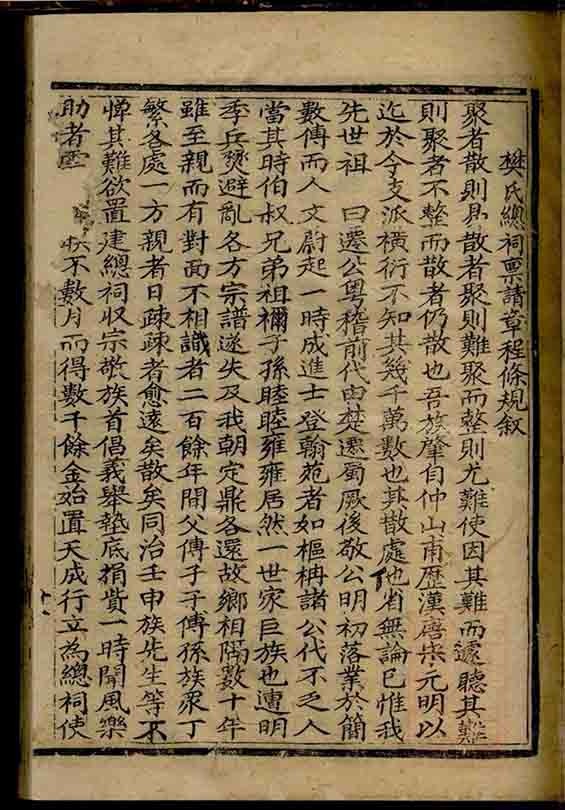 樊氏總祠禀請章程條規叙
聚者散則易散者聚則難聚而整則尤難使因其難而遽聽其難
則聚者不整而散者仍散也吾族肇自仲山甫歷漢唐宋元明以
迄於今支派橫衍不知其幾千萬數也其散處他省無論已惟我
先世祖 曰遷公粤稽前代由楚遷蜀厥後敬公明初落業於簡
數傳而人文蔚起一時成進士登翰苑者如樞枏諸公代不乏人
當其時伯叔兄弟祖禰子孫睦睦雍雍居然一世家巨族也遭明
季兵燹避亂各方宗譜遂失及我朝定鼎各還故鄉相隔數十年
雖至親而有對面不相識者二百餘年間父傳子子傳孫族衆丁
繁各處一方親者日疎疎者愈遠矣散矣同治壬申族先生等不
憚其難欲置建總祠收宗敬族首倡義舉墊底捐貲一時聞風樂
助者 不數月而得數千餘金始置天成行立為總祠使